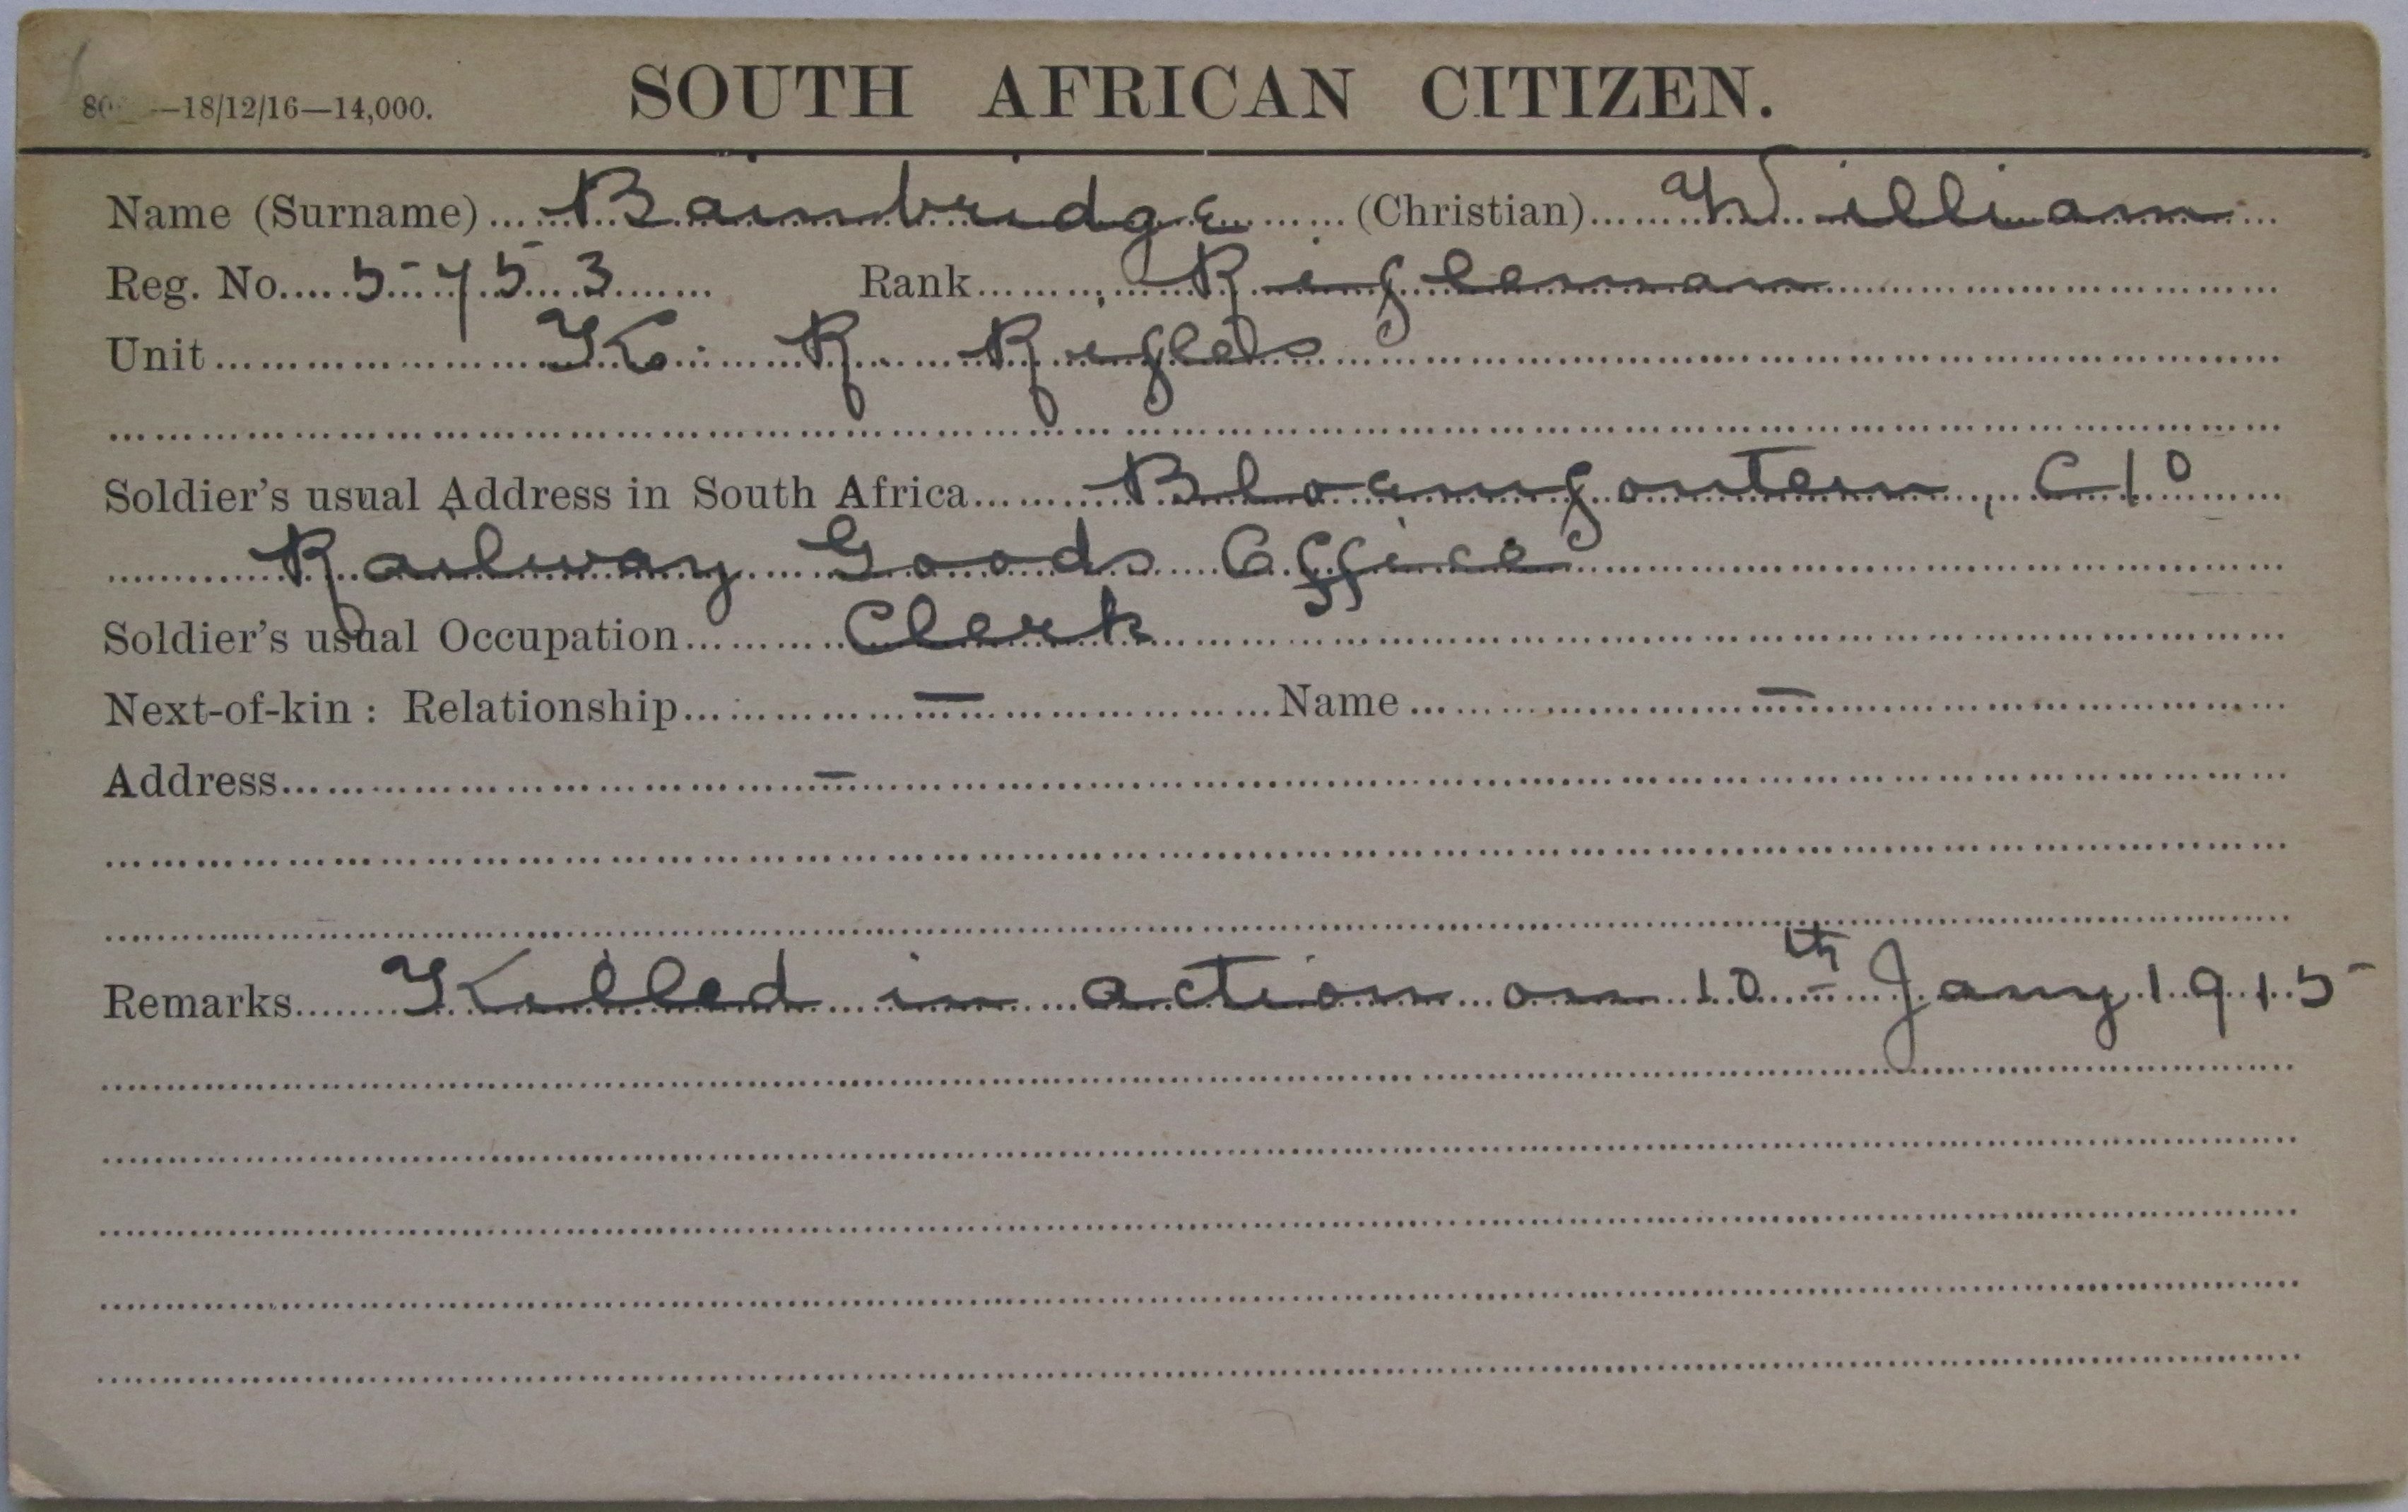 —18/12/16—14,000.
SOUTH AFRICAN CITIZEN.
Name (Surname) Bainbridge (Christian) William
Reg. No. 5753 Rank Rifleman
Unit K. R. Rifles
Soldier's usual Address in South Africa Bloemfontein, C/o
Railway Goods Office
Soldier's usual Occupation Clerk
Next-of-kin: Relationship — Name —
Address —
Remarks Killed in action on 10th Jany 1915